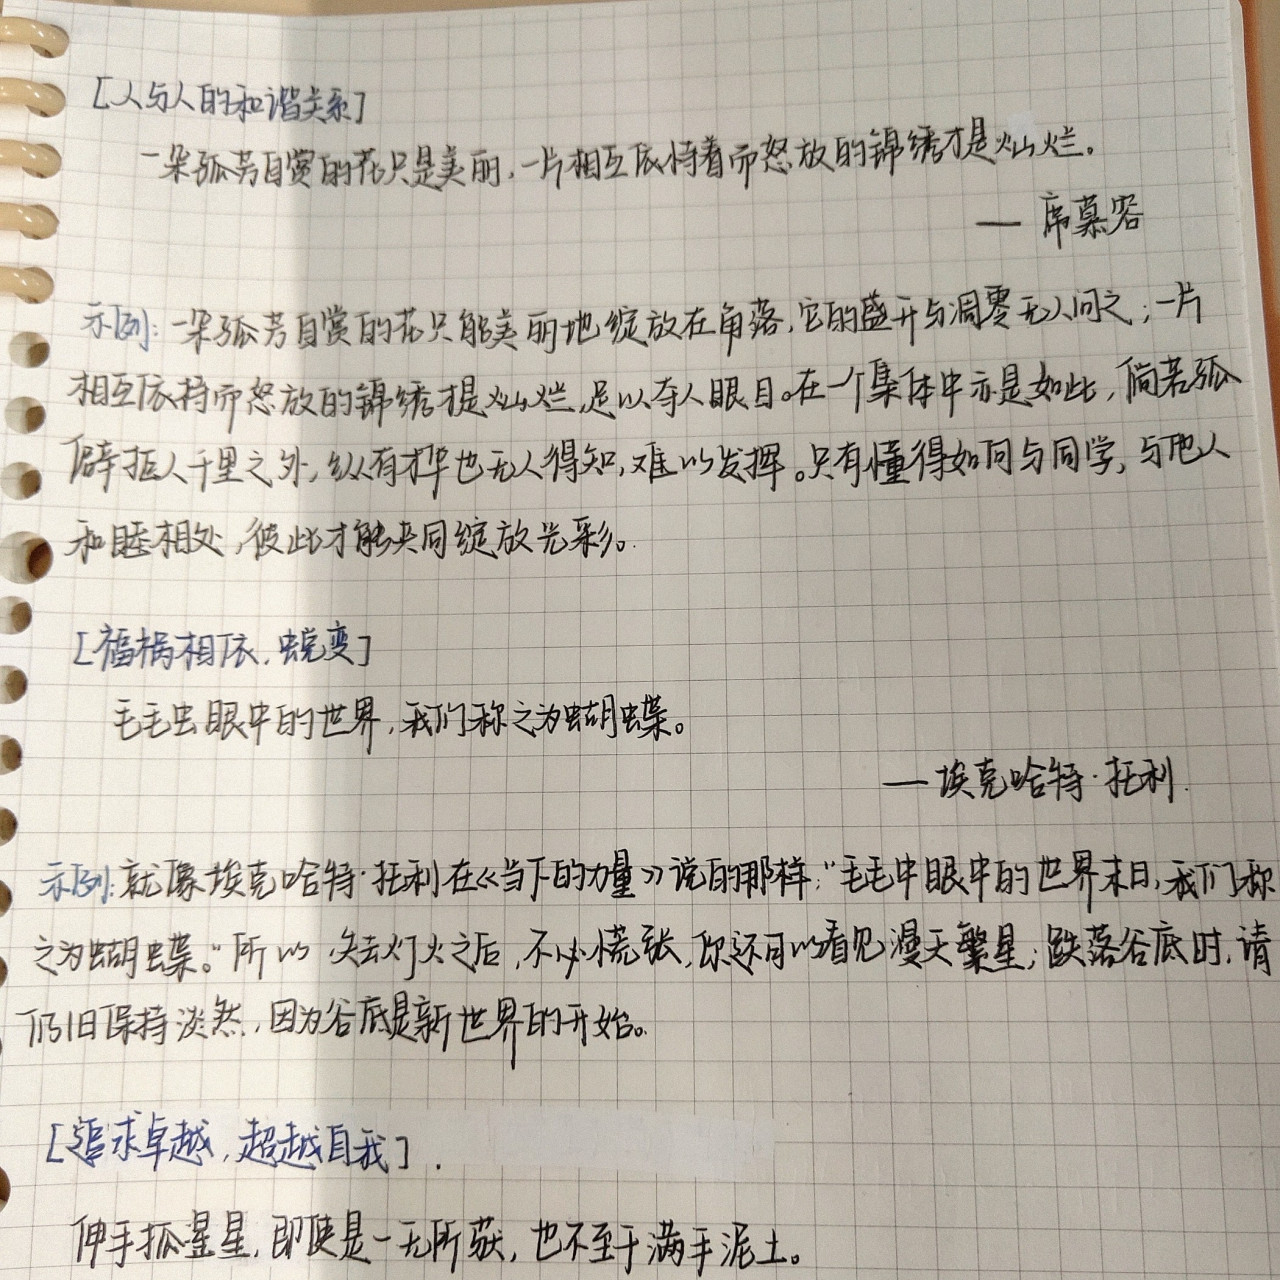 [人与人的和谐关系]
一朵孤芳自赏的花只是美丽，一片相互依恃着而怒放的锦绣才是灿烂。
— 席慕容
示例：一朵孤芳自赏的花只能美丽地绽放在角落，它的盛开与凋零无人问之；一片
相互依持而怒放的锦绣才是灿烂，足以夺人眼目。在一个集体中亦是如此，倘若孤
僻拒人千里之外，纵有才华也无人得知，难以发挥。只有懂得如何与同学，与他人
和睦相处，彼此才能共同绽放光彩。
[福祸相依，蜕变]
毛毛虫眼中的世界，我们称之为蝴蝶。
— 埃克哈特·托利
示例：就像埃克哈特·托利在《当下的力量》说的那样：“毛毛中眼中的世界末日，我们称
之为蝴蝶。”所以 失去灯火之后，不必慌张，你还可以看见漫天繁星；跌落谷底时，请
仍旧保持淡然，因为谷底是新世界的开始。
[追求卓越，超越自我].
伸手抓星星，即使是一无所获，也不至于满手泥土。